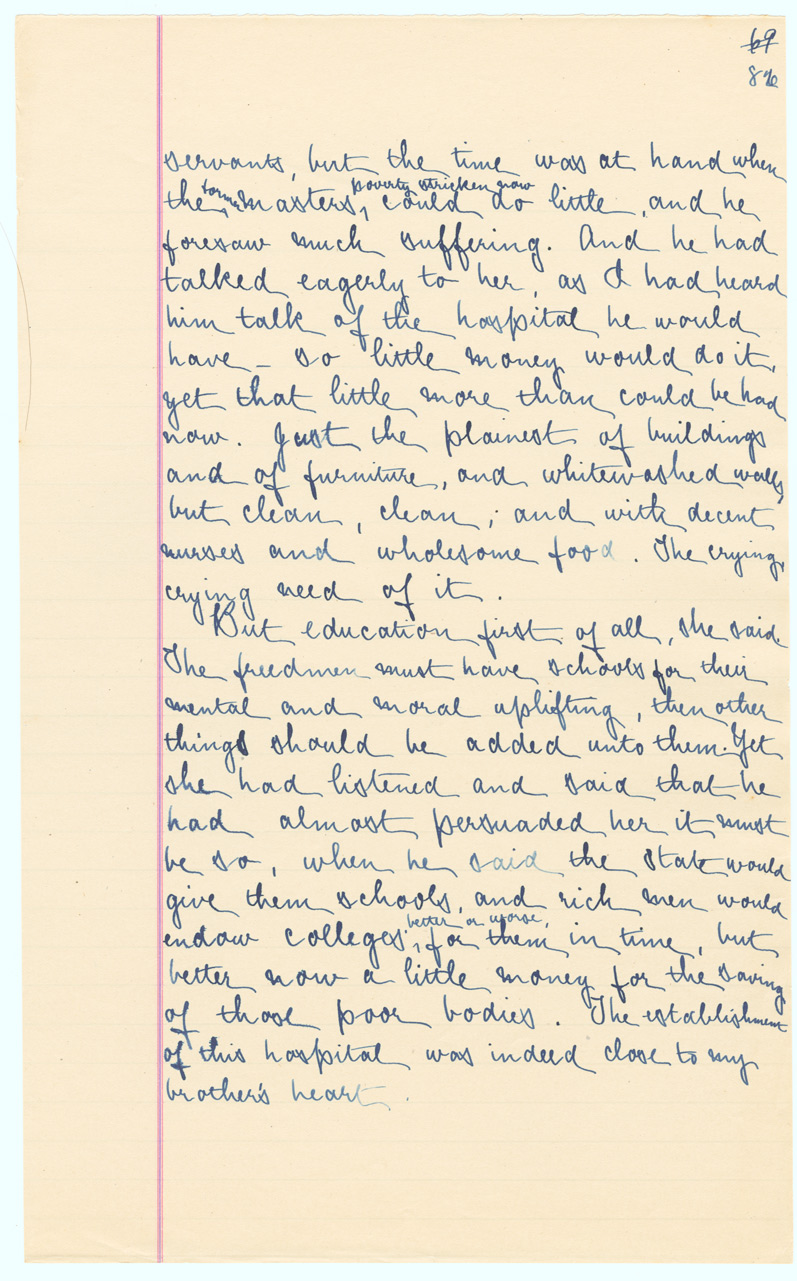 69
86
servants, but the time was at hand when
the former masters, poverty stricken now could do little, and he
foresaw much suffering. And he had
talked eagerly to her, as I had heard
him talk of the hospital he would
have – so little money would do it,
yet that little more than could be had
now. Just the plainest of buildings
and of furniture, and whitewashed walls,
but clean, clean; and with decent
nurses and wholesome food. The crying,
crying need of it.
But education first of all, she said.
The freedmen must have schools for their
mental and moral uplifting, then other
things should be added unto them. Yet
she had listened and said that he
had almost persuaded her it must
be so, when he said the State would
give them schools, and rich men would
endow colleges, better or worse, for them in time, but
better now a little money for the saving
of those poor bodies. The establishment
of this hospital was indeed close to my
brother's heart.